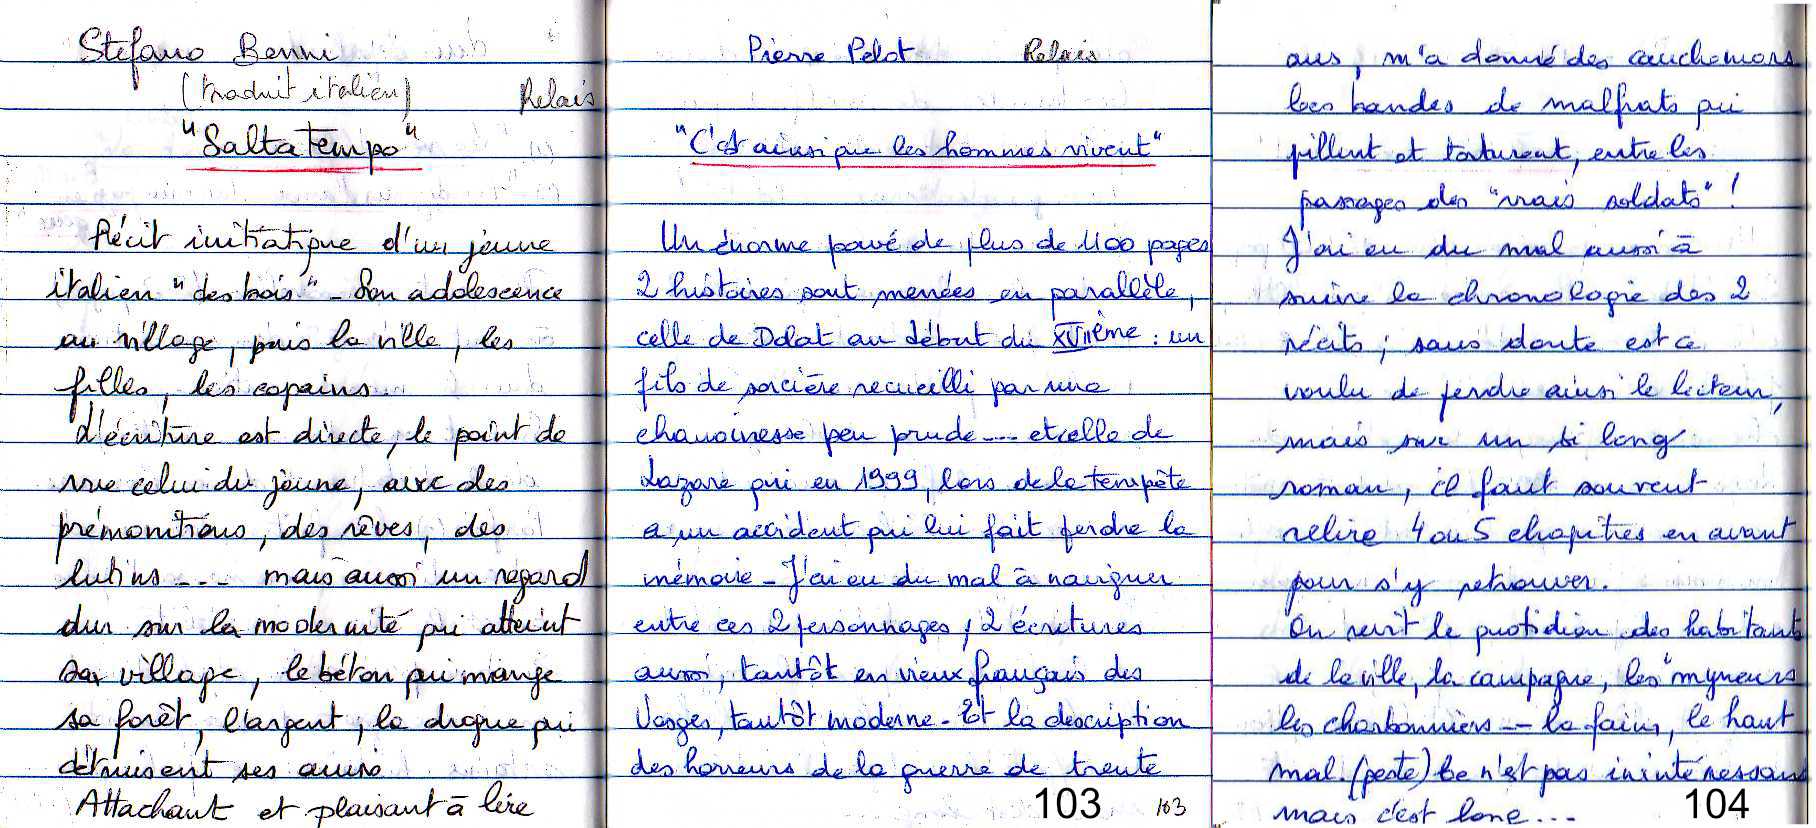 Stefano Benni
(traduit italien) Relais
"Saltatempo"
Récit initiatique d'un jeune
italien "des bois" - Son adolescence
au village, puis la ville, les
filles, les copains.
L'écriture est directe, le point de
vue celui du jeune, avec des
prémonitions, des rêves, des
lutins --- mais aussi un regard
dur sur la modernité qui atteint
son village, le béton qui mange
sa forêt, l'argent, la drogue qui
détruisent ses amis
Attachant et plaisant à lire
Pierre Pelot Relais
"C'est ainsi que les hommes vivent"
Un énorme pavé de plus de 1100 pages
2 histoires sont menées en parallèle,
celle de Dolat au début du XVIIème : un
fils de sorcière recueilli par une
chanoinesse peu prude --- et celle de
Lazare qui en 1999, lors de la tempête
a un accident qui lui fait perdre la
mémoire - J'ai eu du mal à naviguer
entre ces 2 personnages, 2 écritures
aussi, tantôt en vieux français des
Vosges, tantôt moderne - Et la description
des horreurs de la guerre de trente
103 103
ans, m'a donné des cauchemars
les bandes de malfrats qui
pillent et torturent, entre les
passages des "vrais soldats" !
J'ai eu du mal aussi à
suivre la chronologie des 2
récits ; sans doute est ce
voulu de perdre ainsi le lecteur,
mais sur un si long
roman, il faut souvent
relire 4 ou 5 chapitres en avant
pour s'y retrouver.
On revit le quotidien des habitants
de la ville, la campagne, les "myneurs
les charbonniers -- la faim, le haut
mal (peste) ce n'est pas inintéressant
mais c'est long...
104